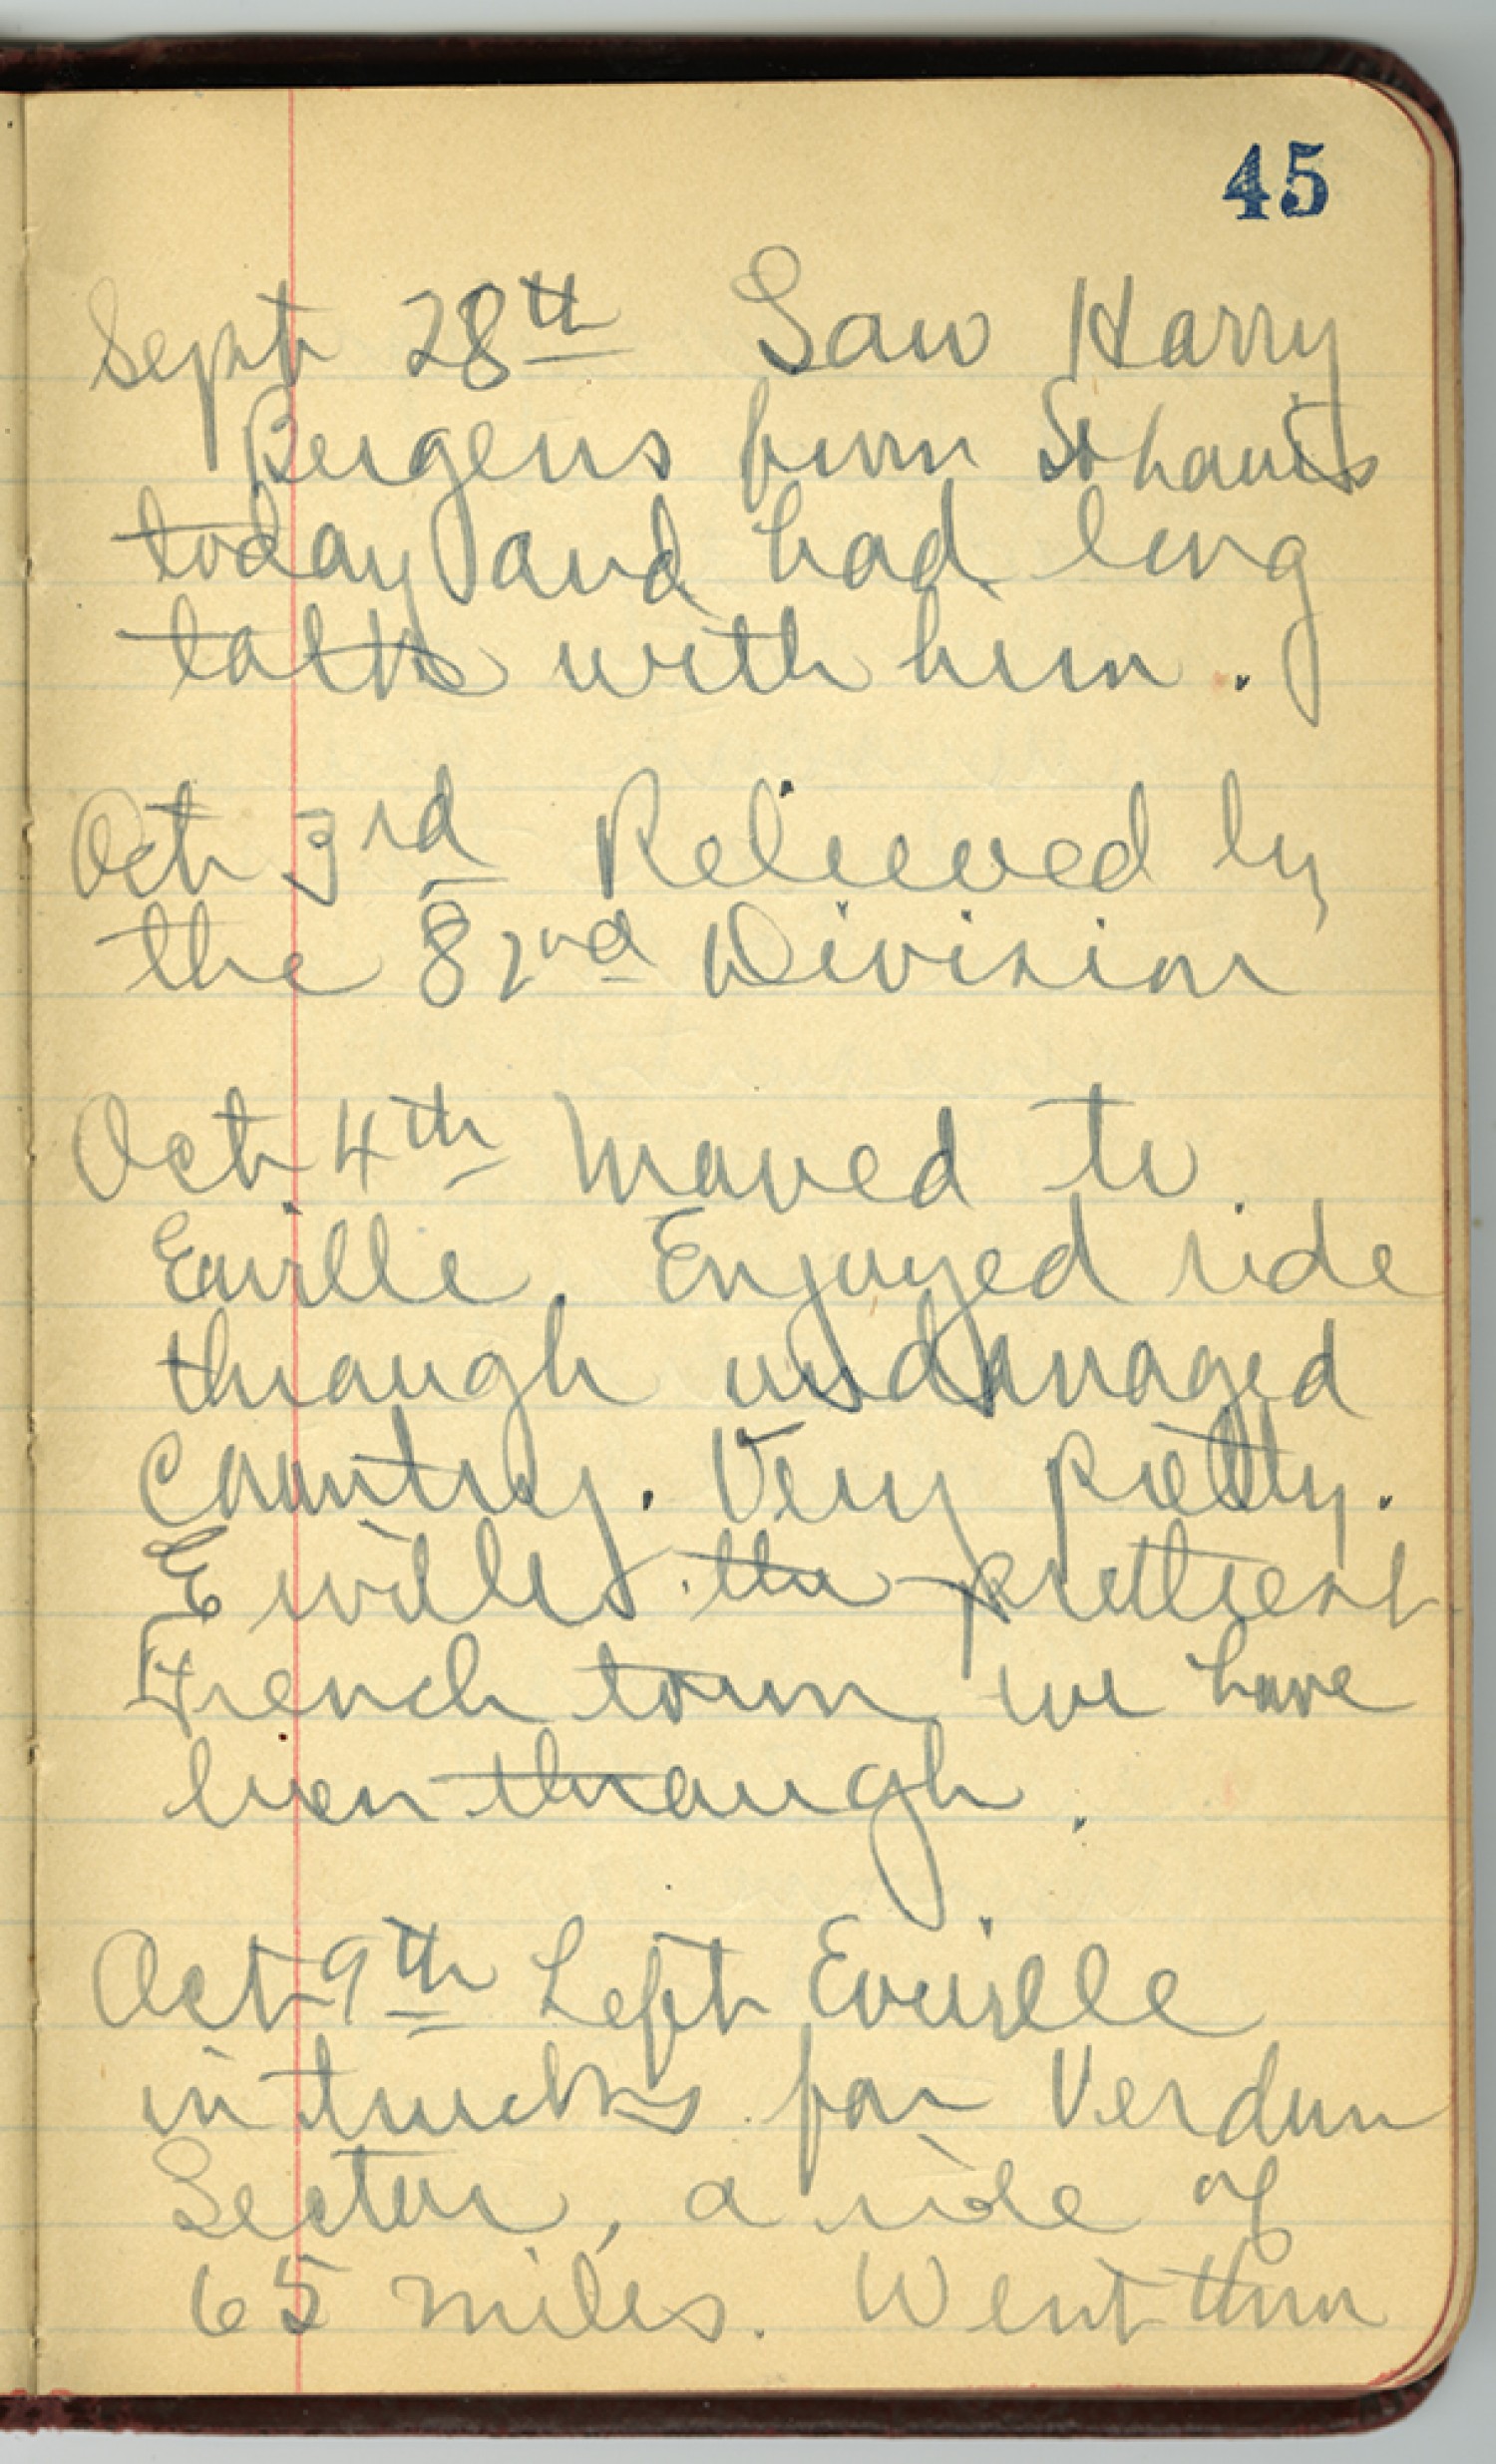 45
Sept 28th Saw Harry
Bergens from St Louis
today and had long
talk with him.
Oct 3rd Relieved by
the 82nd Division
Oct 4th Moved to
Euville. Enjoyed ride
through undamaged
country. Very pretty.
Euville the prettiest
French town we have
been through.
Oct 9th Left Euville
in trucks for Verdun
Sector, a ride of
65 miles. Went thru